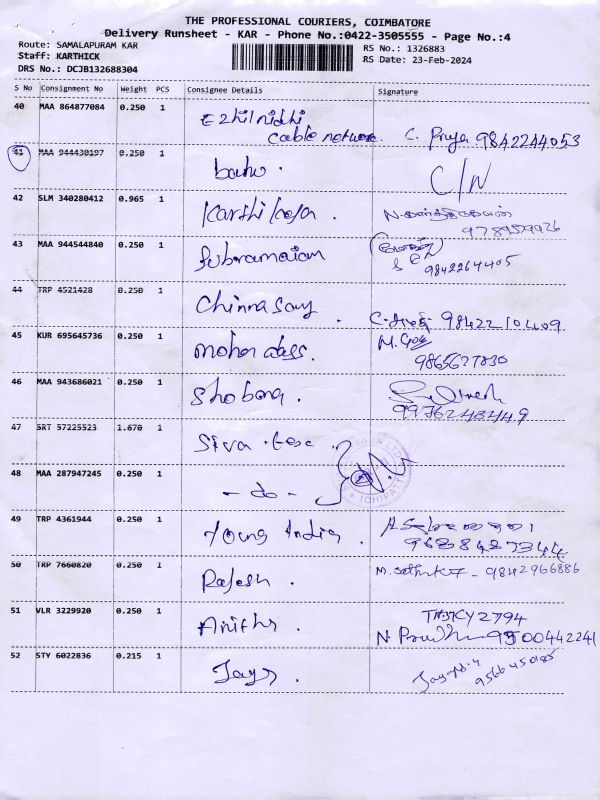 THE PROFESSIONAL COURIERS, COIMBATORE
Delivery Runsheet - KAR - Phone No.:0422-3505555 - Page No.:4
Route: SAMALAPURAM KAR
RS No.: 1326883
Staff: KARTHICK
RS Date: 23-Feb-2024
DRS No.: DCJB132688304
S No Consignment No Weight PCS Consignee Details Signature
40 MAA 864877084 0.250 1 Ezhilnidhi
cable network. C. Priya 9842244053
41 MAA 944430197 0.250 1 C/N
42 SLM 340280412 0.965 1
43 MAA 944544840 0.250 1 Subramaiam
9842264405
44 TRP 4521428 0.250 1 Chinnasamy. 98422 10409
45 KUR 695645736 0.250 1 mohan dass.
9865627830
46 MAA 943686021 0.250 1 Shobana.
47 SRT 57225523 1.670 1 Siva
48 MAA 287947245 0.250 1 - do -
49 TRP 4361944 0.250 1 Young India.
9638427344
50 TRP 7660820 0.250 1 Rajesh. 9842966886
51 VLR 3229920 0.250 1 Anitha.
9500442241
52 STY 6022836 0.215 1